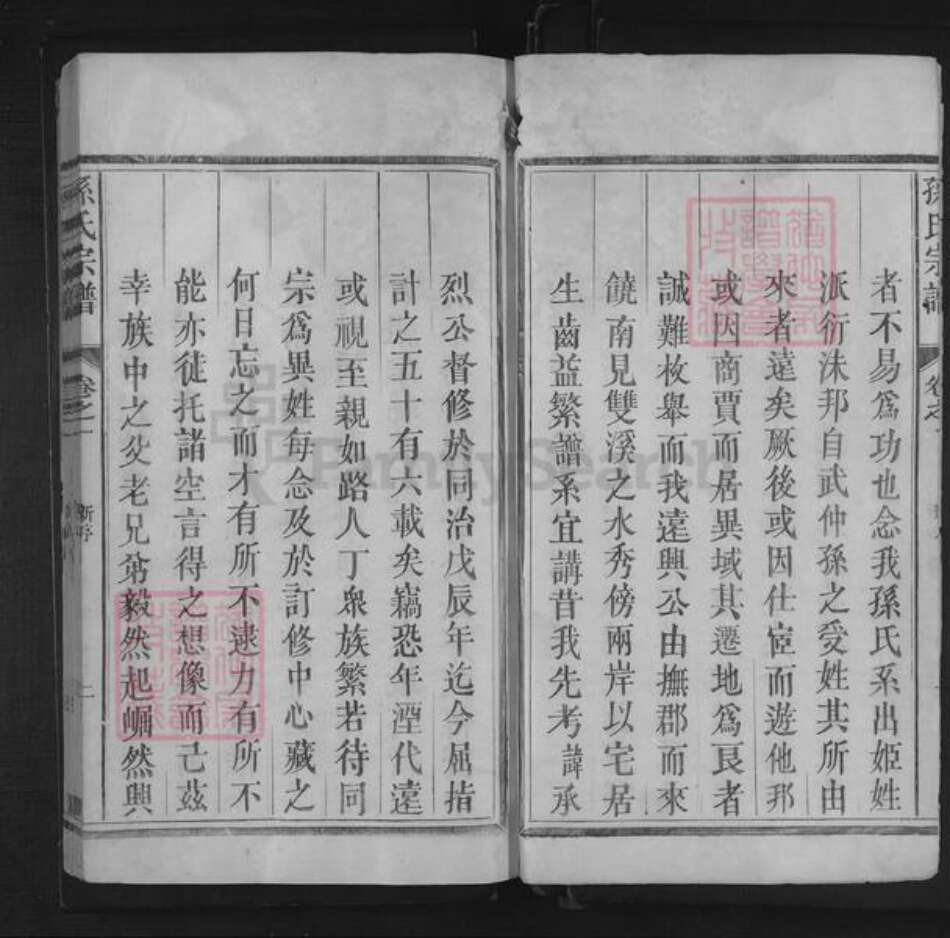 孫氏宗譜
卷之一
者不易爲功也念我孫氏系出姬姓
派衍沬邦自武仲孫之受姓其所由
來者遠矣厥後或因仕宦而遊他邦
或因商賈而居異域其遷地爲良者
誠難枚舉而我遠興公由撫郡而來
饒南見雙溪之水秀傍兩岸以宅居
生齒益繁譜系宜講昔我先考諱承
烈公督修於同治戊辰年迄今屈指
計之五十有六載矣竊恐年湮代遠
或視至親如路人丁衆族繁若待同
宗爲異姓每念及於訂修中心藏之
何日忘之而才有所不逮力有所不
能亦徒托諸空言得之想像而已茲
幸族中之父老兄弟毅然起崛然興
孫氏宗譜
卷之一
新序
二
FamilySearch